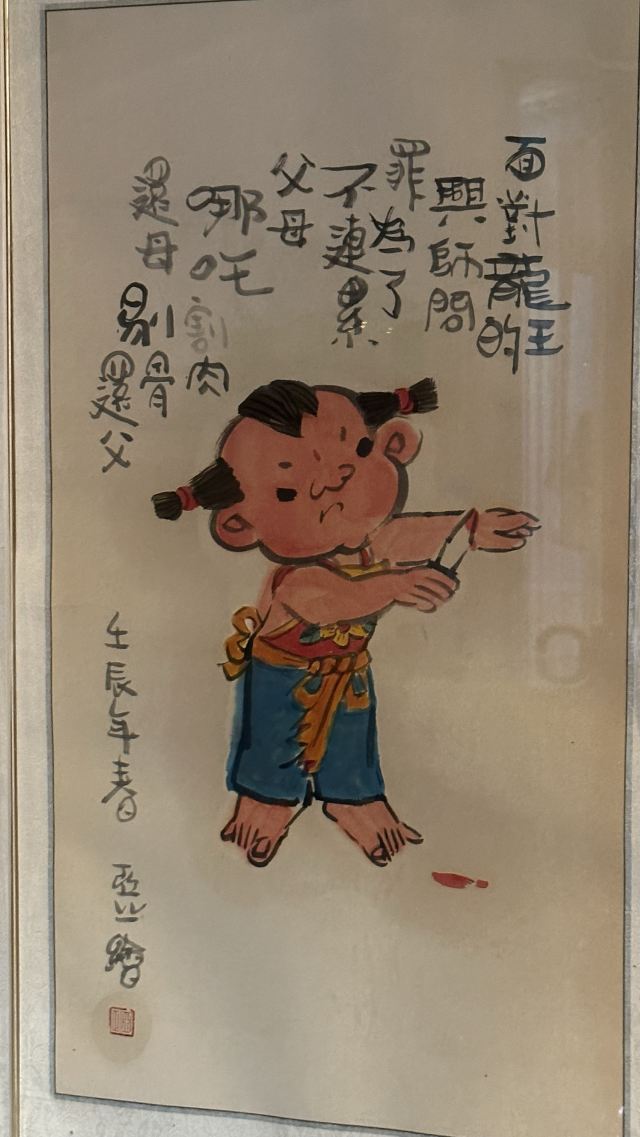 面對龍王的
興師問
罪為了
不連累
父母
哪吒割肉
還母剔骨
還父
壬辰年春 亞繪